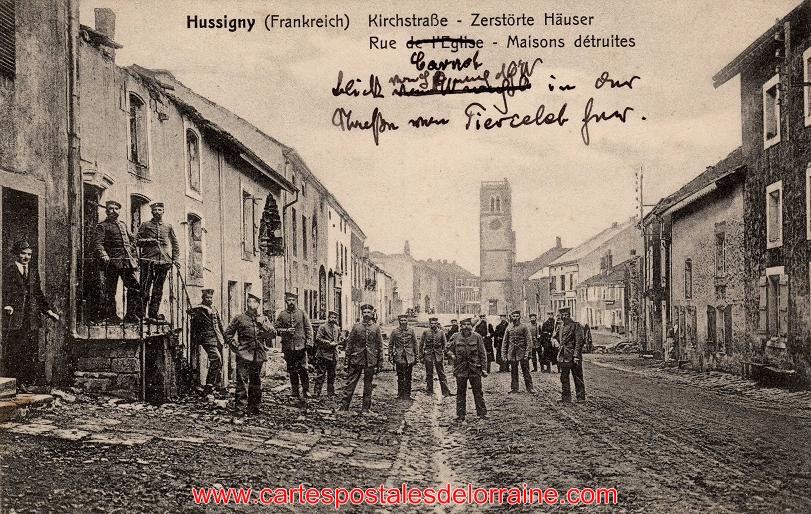 Hussigny (Frankreich) Kirchstraße - Zerstörte Häuser
Rue de l'Eglise - Maisons détruites
Carnot
blick in der
Straße von Tiercelet her.
www.cartespostalesdelorraine.com